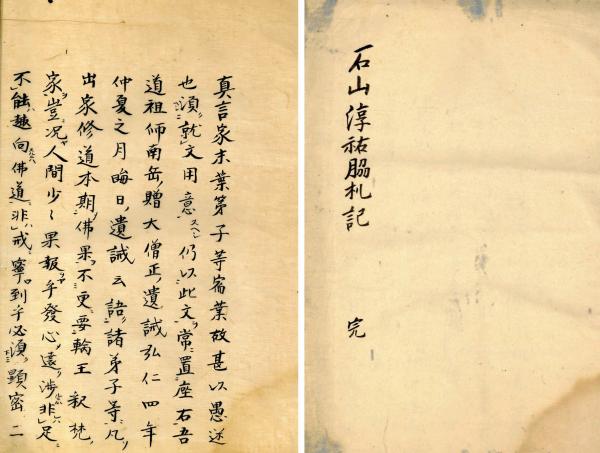 石山淳祐脇札記
完
真言家末葉弟子等崙業故甚以愚迷
也須就文用意スヘシ仍以此文常置座右吾
道祖師南岳贈大僧正遺誡弘仁四年
仲夏之月晦日遺誡云語諸弟子等凡
出家修道本期佛果不更要輪王釈梵
家豈況人間少〻果報乎發心遠渉非足
不能趣向佛道非戒寧到乎必須顕密二